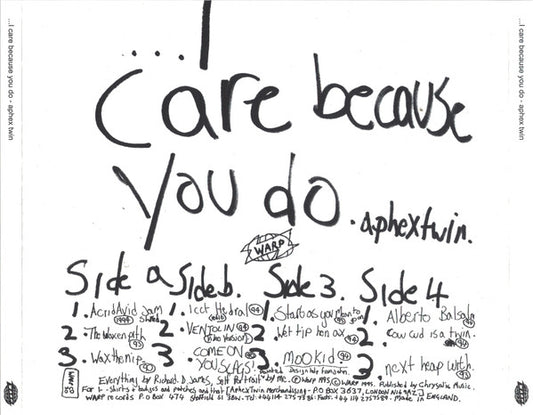 ...I care because you do - aphex twin
...I
Care because
you do. aphextwin.
WARP
Side a. Side b. Side 3. Side 4
1. Acrid Avid Jam Shred (1994)
2. The Waxen pith (94)
3. Wax the nip (90)
1. Icct Hedral (94) (edit)
2. VENTOLIN (94) (Video Version)
3. COME ON YOU SLAGS! (90)
1. Start as you Mean to go on (93)
2. Wet tip hen ax (94)
3. Mookid (94)
1. Alberto Balsalm (94)
2. Cow cud is a twin. (94)
3. next heap with.
Everything by Richard. D. James, Self Portrait by me. © Warp 1995 ℗ WARP 1995. Published by Chrysalis Music.
For t-shirts + badges and patches and that [Aphex Twin Merchandising - P.O BOX 3637, LONDON
WARP records P.O Box 474 Sheffield Made IN ENGLAND.
...I care because you do - aphex twin